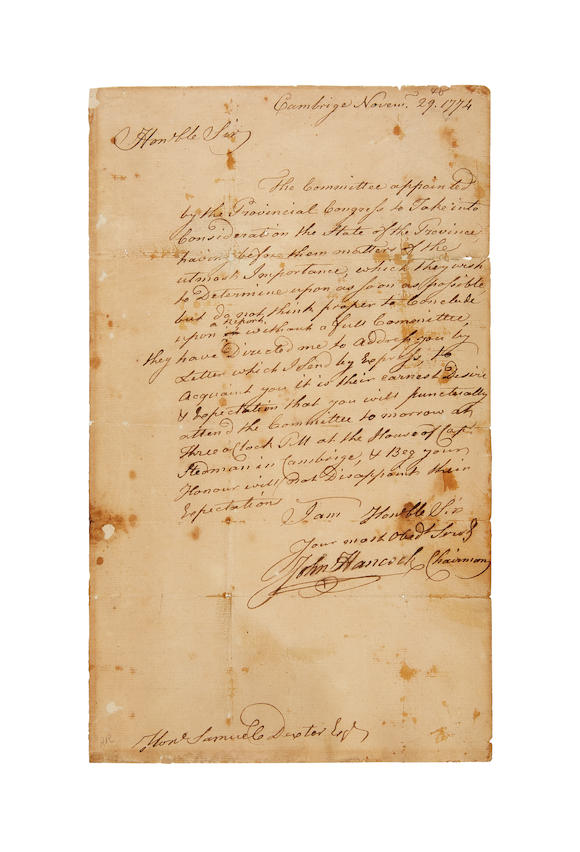 Cambrige Novem.r 29. 1774
Hon.ble Sir
The Committee appointed
by the Provincial Congress to Take into
Consideration the State of the Province
having before them matters of the
utmost Importance, which they wish
to Determine upon as soon as possible
but do not think proper to Conclude
a report
upon without a full Committee,
they have Directed me to Address you by
Letter which I send by Express, to
Acquaint you it is their earnest Desire
& Expectation that you will punctually
attend the Committee to morrow at
Three o Clock P.M at the House of Cap.t
Stedman in Cambrige, & Beg your
Honour will not Disappoint their
Expectation
I am Hon.ble Sir
Your most Obed.t Serv.t
John Hancock Chairman
Hon.e Samuel Dexter Esq.r